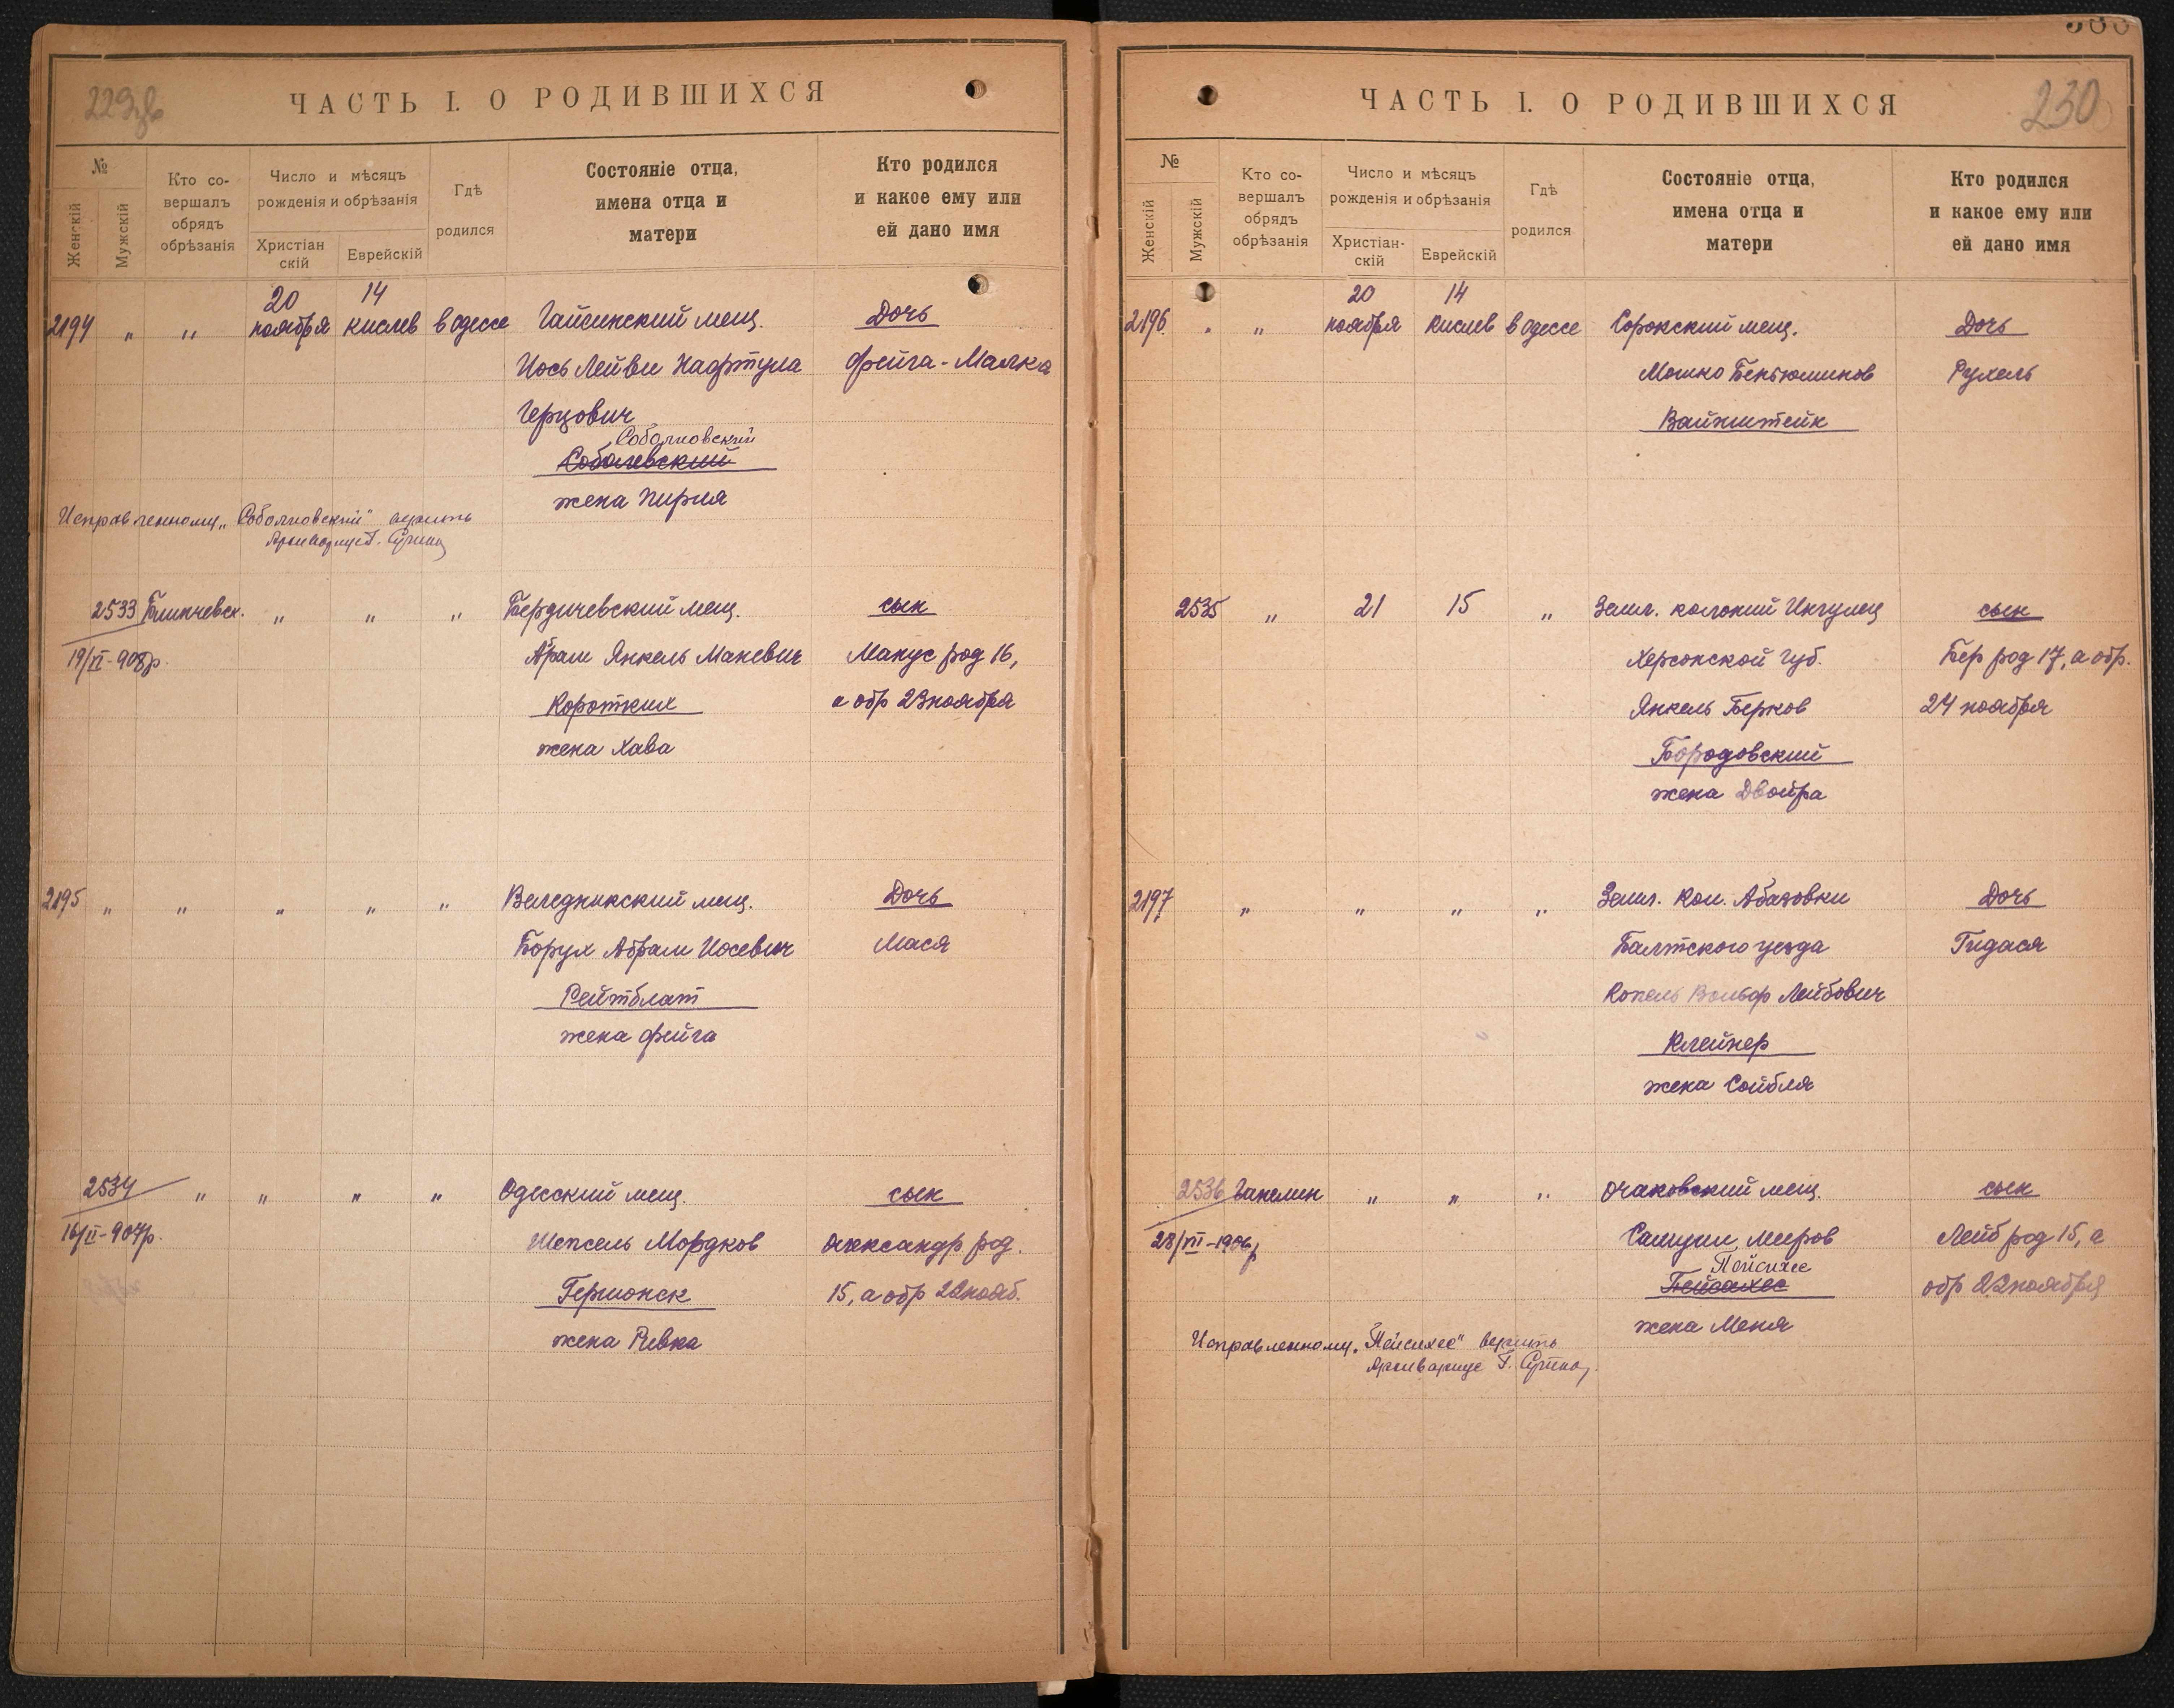 229 зв
ЧАСТЬ I. О РОДИВШИХСЯ
№
Женскій
Мужскій
Кто со-
вершалъ
обрядъ
обрѣзанія
Число и мѣсяцъ
рожденія и обрѣзанія
Христіан
скій
Еврейскій
Гдѣ
родился
Состояніе отца,
имена отца и
матери
Кто родился
и какое ему или
ей дано имя
2194 " " 20 ноября 14 кислев в одессе Гайсинский мещ. Дочь
Иось Лейви Нафтула Фейга-Малка
Герцович
Соболиовский
Соболевский
жена Пирля
Исправленному „Соболиовский" верить
2533 Блинчевск. " " " Бердичевский мещ. сын
19/VI-908р. Абрам Янкель Маневич Манус род 16,
Коротких а обр 23 ноября
жена Хава
2195 " " " " " Веледникский мещ. Дочь
Борух Абрам Иосевич Мася
Рейтблат
жена Фейга
2534 " " " " Одесский мещ. сын
16/II-907р. Шепсель Мордков Александр род.
Германск 15, а обр 22 нояб.
жена Ривка
230
ЧАСТЬ I. О РОДИВШИХСЯ
№
Женскій
Мужскій
Кто со-
вершалъ
обрядъ
обрѣзанія
Число и мѣсяцъ
рожденія и обрѣзанія
Христіан-
скій
Еврейскій
Гдѣ
родился
Состояніе отца,
имена отца и
матери
Кто родился
и какое ему или
ей дано имя
2196 " " 20 ноября 14 кислев в одессе Сорокский мещ. Дочь
Мошко Беньюминов Рухель
Вайнштейн
2535 " 21 15 " Земл. колонии Ингулец сын
Херсонской губ. Бер род 17, а обр.
Янкель Берков 24 ноября
Бородовский
жена Двойра
2197 " " " " Земл. кол. Абазовки Дочь
Балтского уезда Гидася
Копель Вольф Лейбович
Клейнер
жена Сойбля
2536 Ганелин " " " Очаковский мещ. сын
28/VII-1906р Самуил Меиров Лейб род 15, а
Пейсихес
Пейсахес обр 22 ноября
жена Меня
Исправленному „Пейсихес" верить
Архивариус